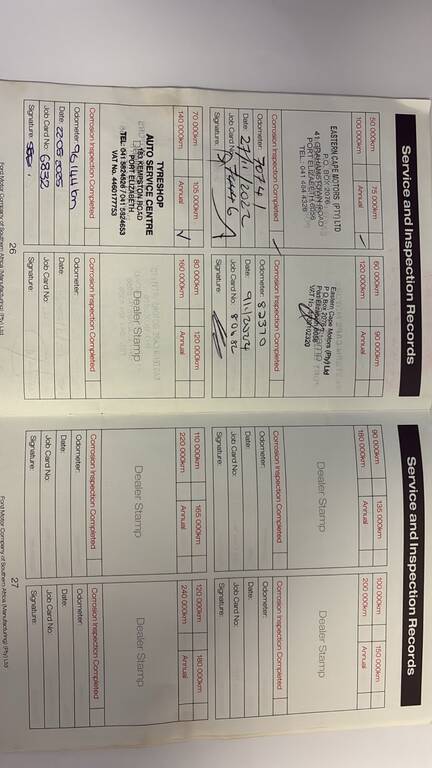 Service and Inspection Records
50 000km 75 000km
100 000km Annual ✓
EASTERN CAPE MOTORS (PTY) LTD
P.O. BOX 2076
PORT ELIZABETH 6056
TEL: 041 484 4328
Corrosion Inspection Completed ✓
Odometer: 70741
Date: 21/11/2022
Job Card No:
Signature:
60 000km 90 000km
120 000km Annual
Eastern Cape Motors (Pty) Ltd
P O Box 2076
Corrosion Inspection Completed
Odometer: 82370
Date:
Job Card No: 80482
Signature:
70 000km 105 000km
140 000km Annual ✓
TYRESHOP
AUTO SERVICE CENTRE
PORT ELIZABETH
TEL: 041 5824826 / 041 5824653
Corrosion Inspection Completed
Odometer:
Date:
Job Card No: 6832
Signature:
80 000km 120 000km
160 000km Annual
Dealer Stamp
Corrosion Inspection Completed
Odometer:
Date:
Job Card No:
Signature:
26
Ford Motor Company of Southern Africa (Manufacturing) (Pty) Ltd
Service and Inspection Records
90 000km 135 000km
180 000km Annual
Dealer Stamp
Corrosion Inspection Completed
Odometer:
Date:
Job Card No:
Signature:
100 000km 150 000km
200 000km Annual
Dealer Stamp
Corrosion Inspection Completed
Odometer:
Date:
Job Card No:
Signature:
110 000km 165 000km
220 000km Annual
Dealer Stamp
Corrosion Inspection Completed
Odometer:
Date:
Job Card No:
Signature:
120 000km 180 000km
240 000km Annual
Dealer Stamp
Corrosion Inspection Completed
Odometer:
Date:
Job Card No:
Signature:
27
Ford Motor Company of Southern Africa (Manufacturing) (Pty) Ltd